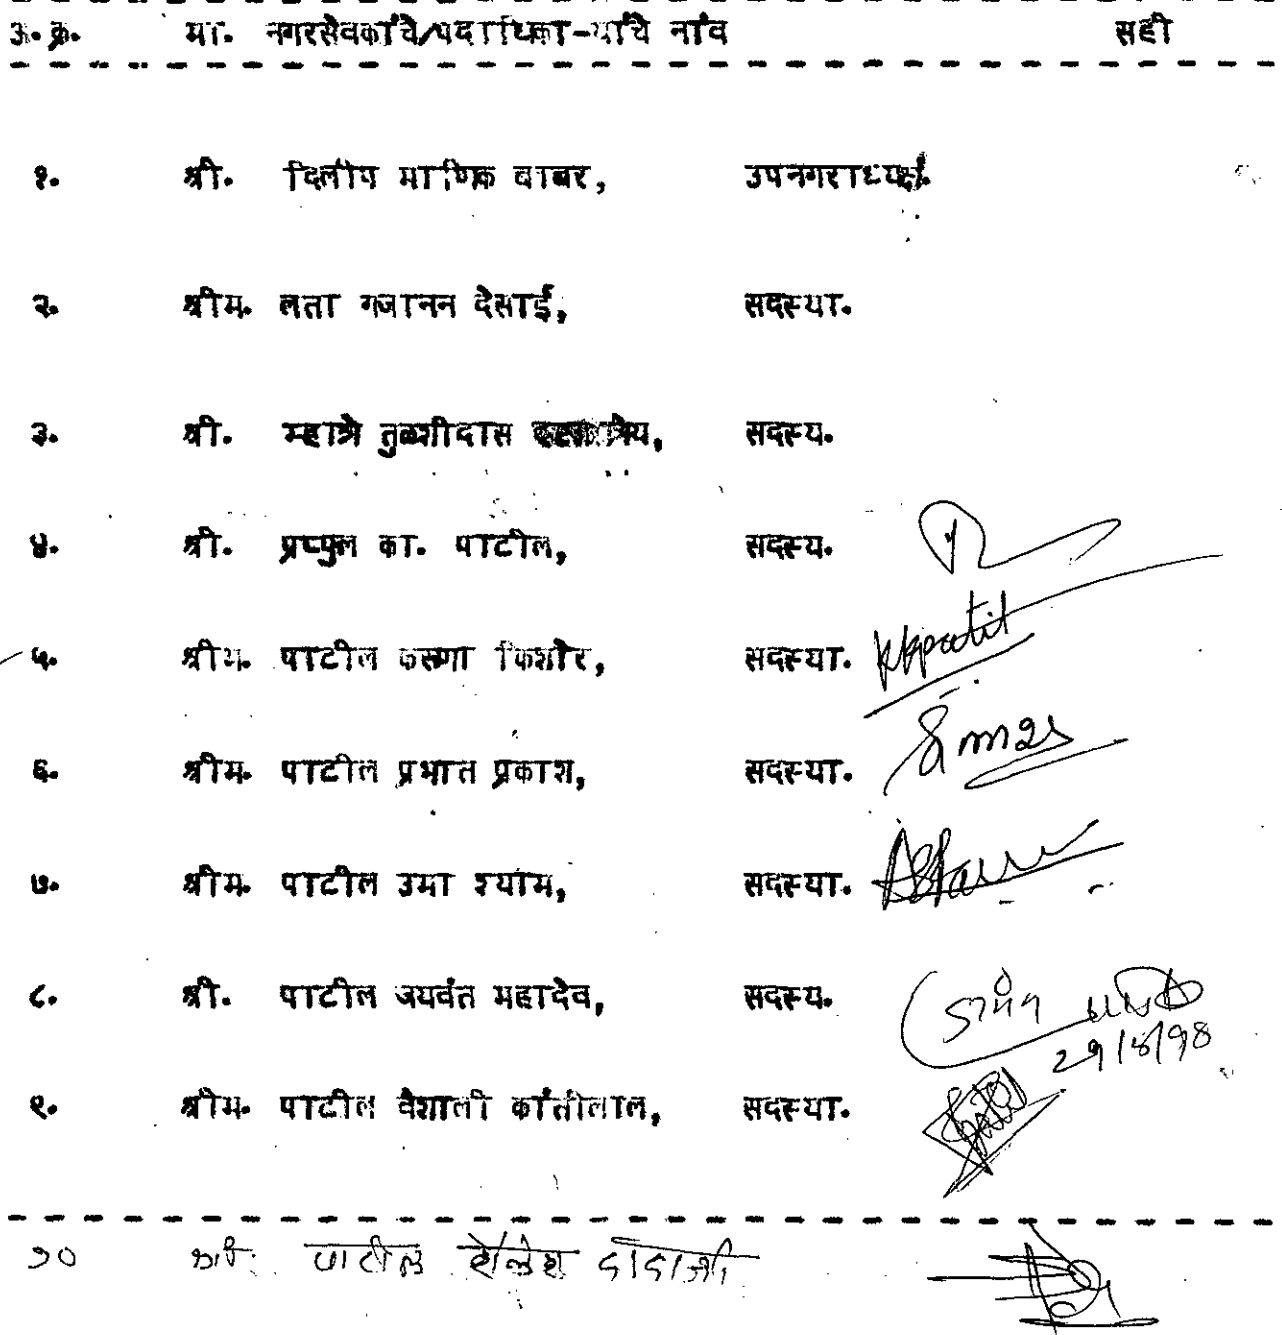 अ.क्र. मा. नगरसेवकांचे/पदाधिका-यांचे नांव सही
१. श्री. दिलीप माणिक बाबर, उपनगराध्यक्ष.
२. श्रीम. लता गजानन देसाई, सदस्या.
३. श्री. म्हात्रे तुळशीदास सदस्य.
४. श्री. प्रफ्फुल का. पाटील, सदस्य.
५. श्रीम. पाटील करुणा किशोर, सदस्या. kkpatil
६. श्रीम. पाटील प्रभात प्रकाश, सदस्या.
७. श्रीम. पाटील उमा श्याम, सदस्या.
८. श्री. पाटील जयवंत महादेव, सदस्य.
९. श्रीम. पाटील वैशाली कांतीलाल, सदस्या.
१० श्री. पाटील शैलेश दादाजी